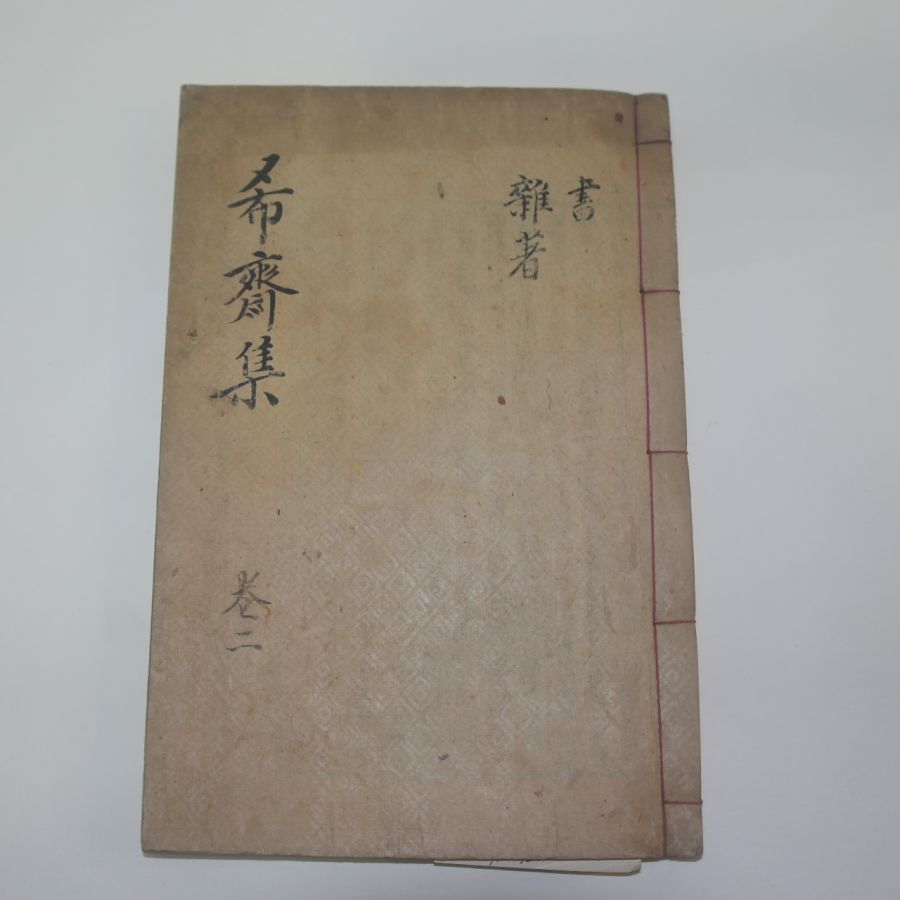 書
雜著
希齋集
卷二